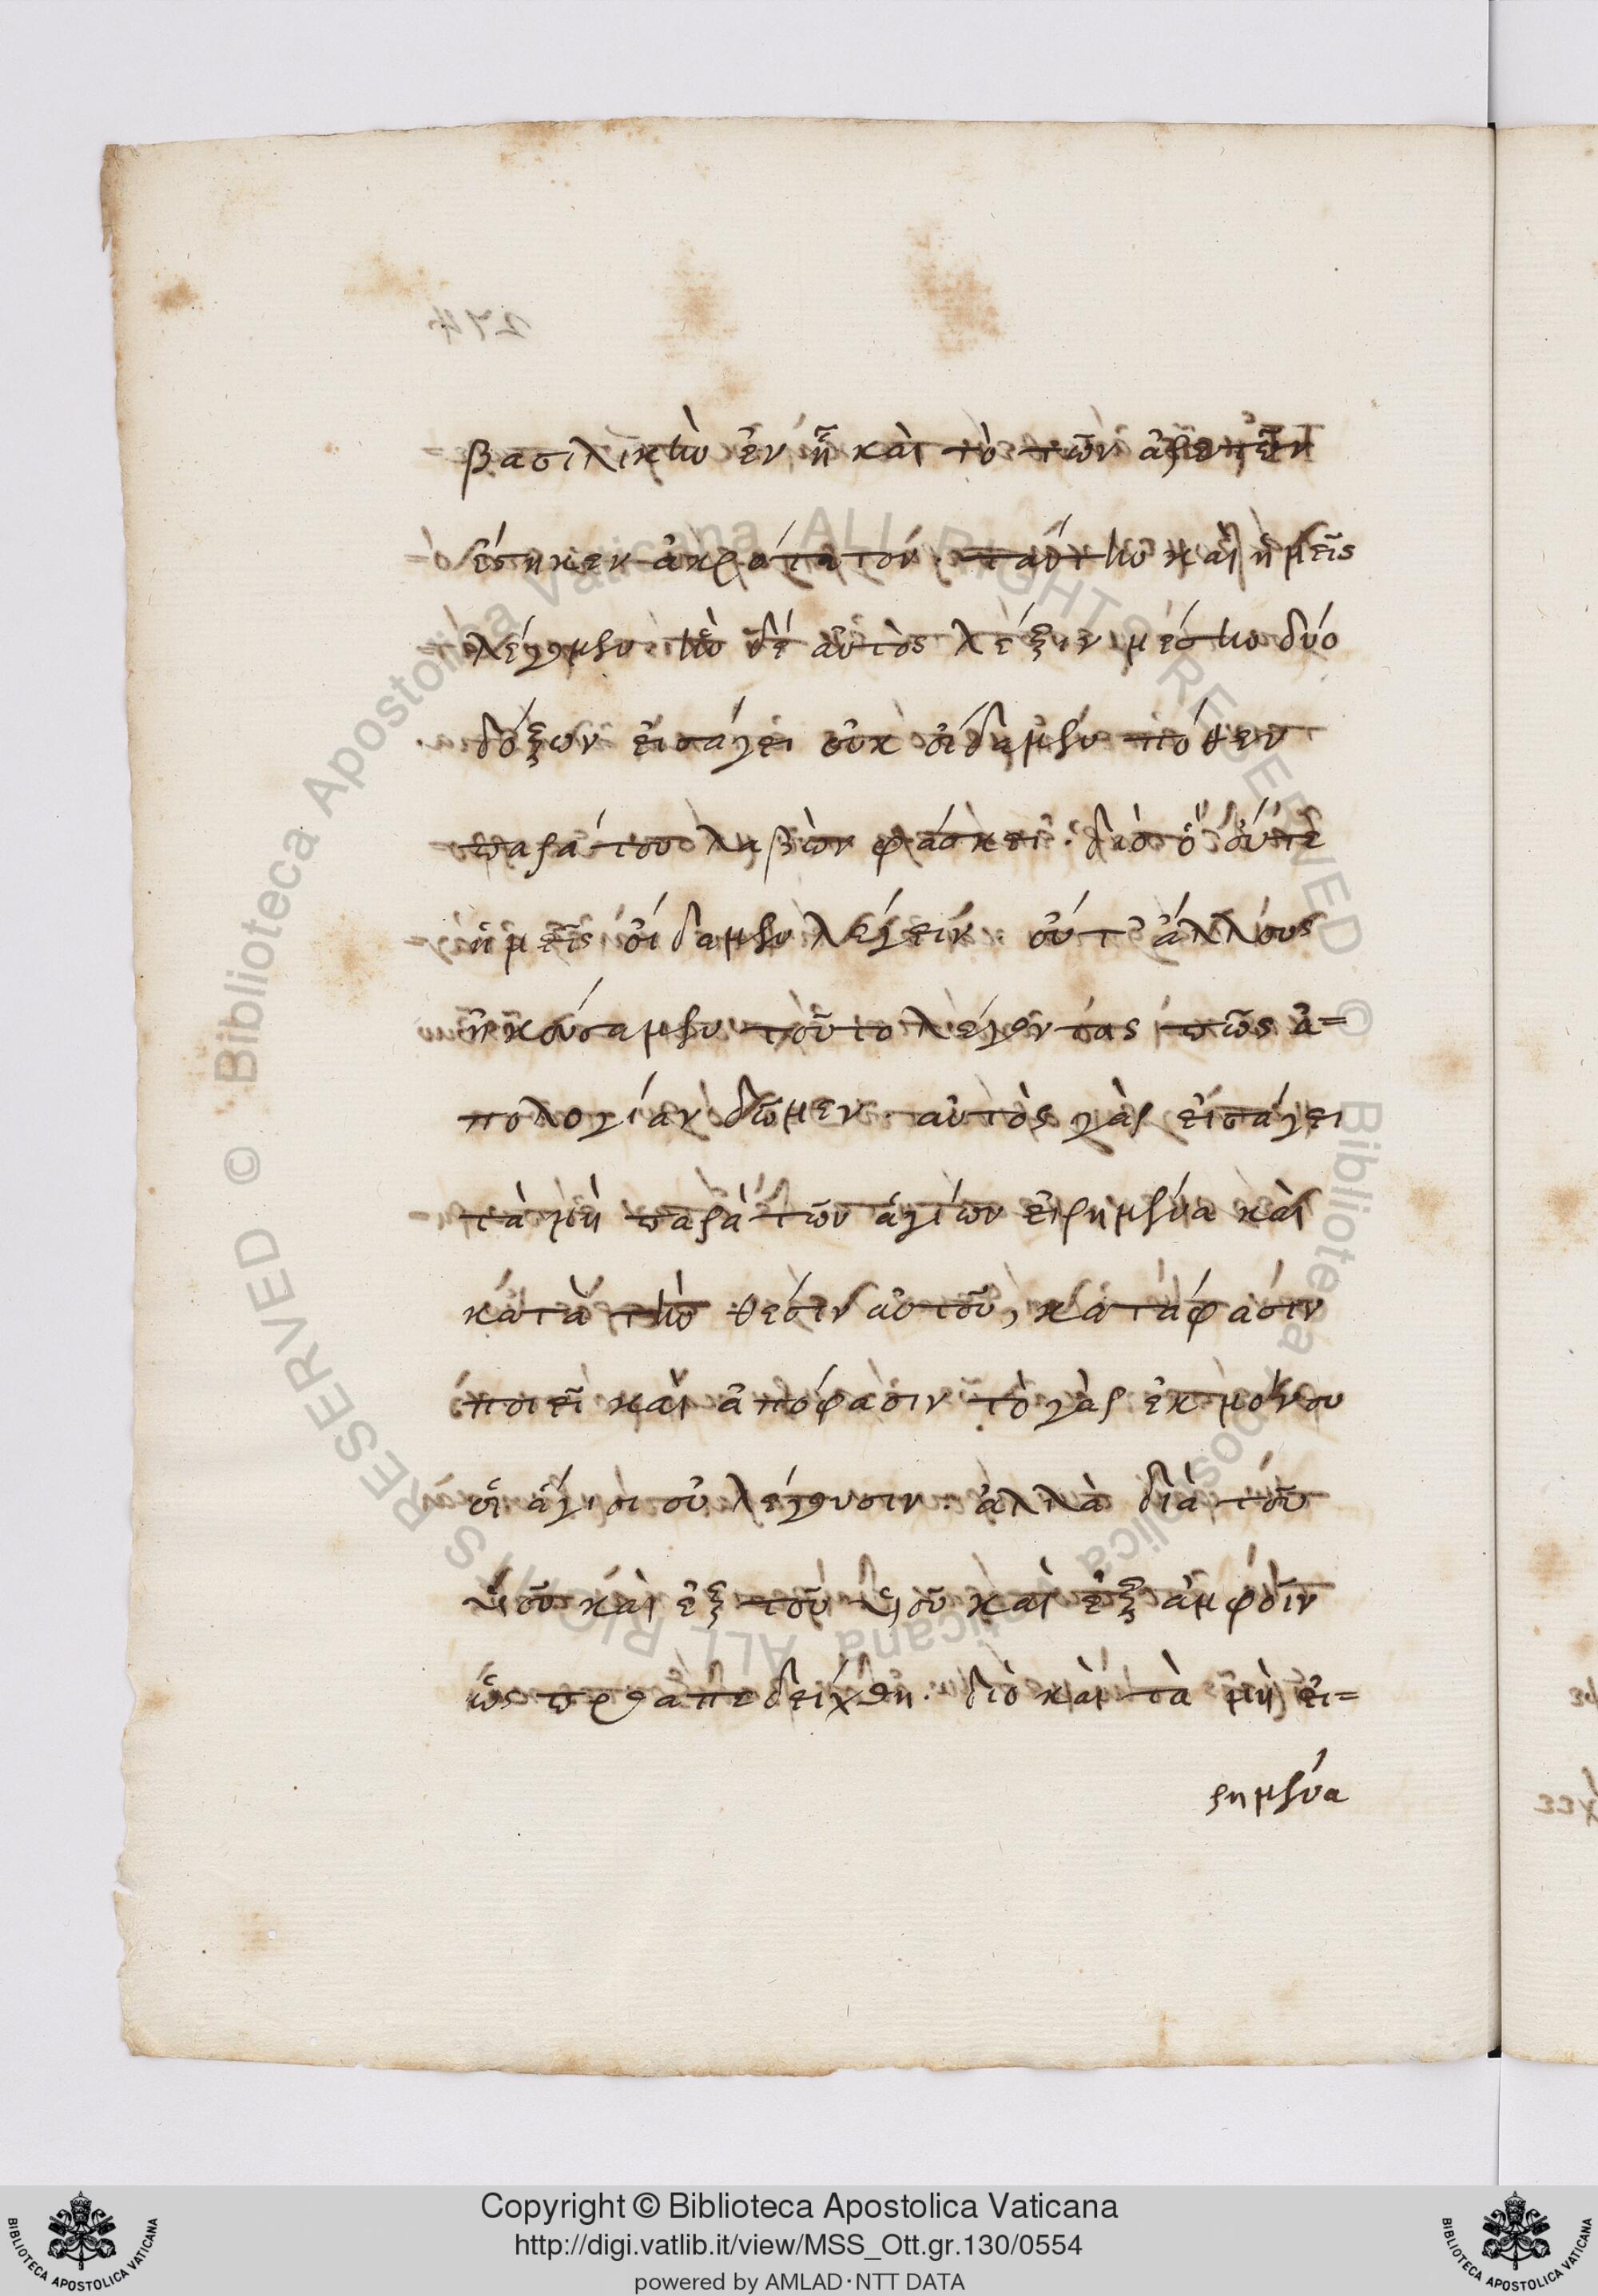 βασιλικὴν ἐν ᾗ καὶ τὸ τῶν ἀρετῶν
ἕστηκεν ἀκρότατον. ταύτην καὶ ἡμεῖς
λέγομεν. ἣν δὲ αὐτὸς λέξιν μέσην δύο
δόξων εἰσάγει οὐκ οἴδαμεν πόθεν
παρά του λαβὼν φάσκει. διὸ ὃ οὔτε
ἡμεῖς οἴδαμεν λέγειν. οὔτ' ἄλλους
ἠκούσαμεν τοῦτο λέγοντας πῶς ἀ=
πολογίαν δῶμεν. αὐτὸς γὰρ εἰσάγει
τὰ μὴ παρὰ τῶν ἁγίων εἰρημένα καὶ
κατὰ τὴν θέσιν αὐτοῦ, κατάφασιν
ποιεῖ καὶ ἀπόφασιν τὸ γὰρ ἐκ μόνου
οἱ ἅγιοι οὐ λέγουσιν. ἀλλὰ διὰ τοῦ
υἱοῦ καὶ ἐξ τοῦ υἱοῦ καὶ ἐξ ἀμφοῖν
ὡς προαπεδείχθη. διὸ καὶ τὰ μὴ εἰ=
ρημένα
274
© Biblioteca Apostolica Vaticana ALL RIGHTS RESERVED
© Biblioteca Apostolica Vaticana ALL RIGHTS RESERVED
Copyright © Biblioteca Apostolica Vaticana
http://digi.vatlib.it/view/MSS_Ott.gr.130/0554
powered by AMLAD·NTT DATA
BIBLIOTECA APOSTOLICA VATICANA
BIBLIOTECA APOSTOLICA VATICANA